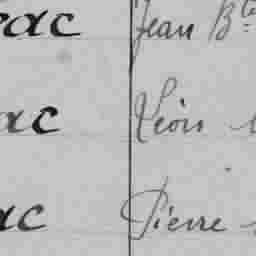 eac Jean Bte
ac Léon
ac Pierre